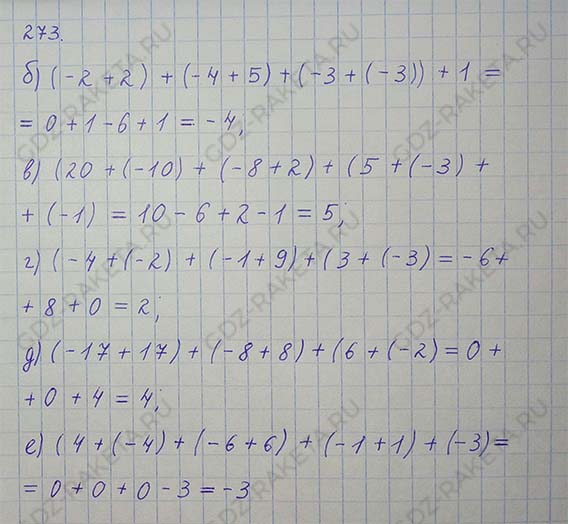 273.
б) (-2 + 2) + (-4 + 5) + (-3 + (-3)) + 1 =
= 0 + 1 - 6 + 1 = -4;
в) (20 + (-10) + (-8 + 2) + (5 + (-3) +
+ (-1) = 10 - 6 + 2 - 1 = 5;
г) (-4 + (-2) + (-1 + 9) + (3 + (-3) = -6 +
+ 8 + 0 = 2;
д) (-17 + 17) + (-8 + 8) + (6 + (-2) = 0 +
+ 0 + 4 = 4;
е) (4 + (-4) + (-6 + 6) + (-1 + 1) + (-3) =
= 0 + 0 + 0 - 3 = -3
GDZ-RAKETA.RU